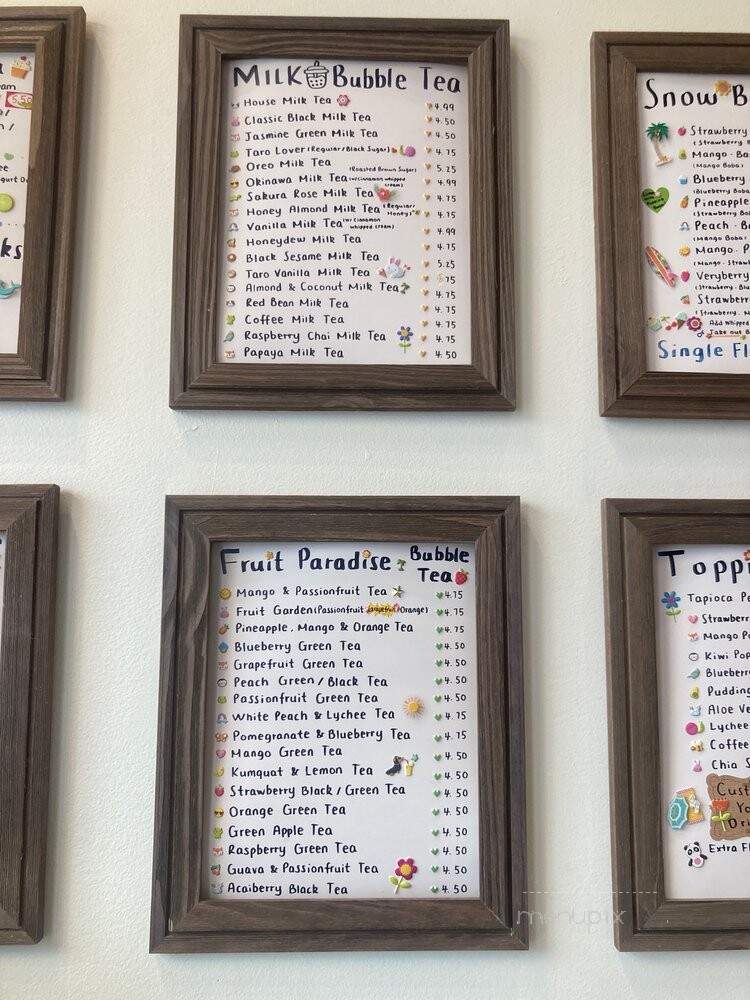 MILK Bubble Tea
House Milk Tea 4.99
Classic Black Milk Tea 4.50
Jasmine Green Milk Tea 4.50
Taro Lover (Regular/Black Sugar) 4.75
Oreo Milk Tea 5.25
Okinawa Milk Tea (Roasted Brown Sugar) (w/cinnamon whipped cream) 4.99
Sakura Rose Milk Tea 4.75
Honey Almond Milk Tea (Regular/Honey) 4.75
Vanilla Milk Tea (w/ cinnamon whipped cream) 4.99
Honeydew Milk Tea 4.75
Black Sesame Milk Tea 5.25
Taro Vanilla Milk Tea 75
Almond & Coconut Milk Tea 4.75
Red Bean Milk Tea 4.75
Coffee Milk Tea 4.75
Raspberry Chai Milk Tea 4.75
Papaya Milk Tea 4.50
Fruit Paradise Bubble Tea
Mango & Passionfruit Tea 4.75
Fruit Garden (Passionfruit, Grapefruit, Orange) 4.75
Pineapple, Mango & Orange Tea 4.75
Blueberry Green Tea 4.50
Grapefruit Green Tea 4.50
Peach Green/Black Tea 4.50
Passionfruit Green Tea 4.50
White Peach & Lychee Tea 4.75
Pomegranate & Blueberry Tea 4.75
Mango Green Tea 4.50
Kumquat & Lemon Tea 4.50
Strawberry Black/Green Tea 4.50
Orange Green Tea 4.50
Green Apple Tea 4.50
Raspberry Green Tea 4.50
Guava & Passionfruit Tea 4.50
Acaiberry Black Tea 4.50
Snow B
Strawberry
(Strawberry B
Mango - Ba
(Mango Boba)
Blueberry
(Blueberry Boba
Pineapple
(Strawberry Bo
Peach - B
(Mango Boba)
Mango - P
(Mango - Straw
Veryberry
(Strawberry - Blu
Strawberr
(Strawberry, M
Add Whipped
Take out B
Single Fl
Toppi
Tapioca Pe
Strawberr
Mango Po
Kiwi Pop
Blueberr
Pudding
Aloe Ve
Lychee
Coffee
Chia S
Cust
Yo
Dri
Extra Fl
ks
menupix